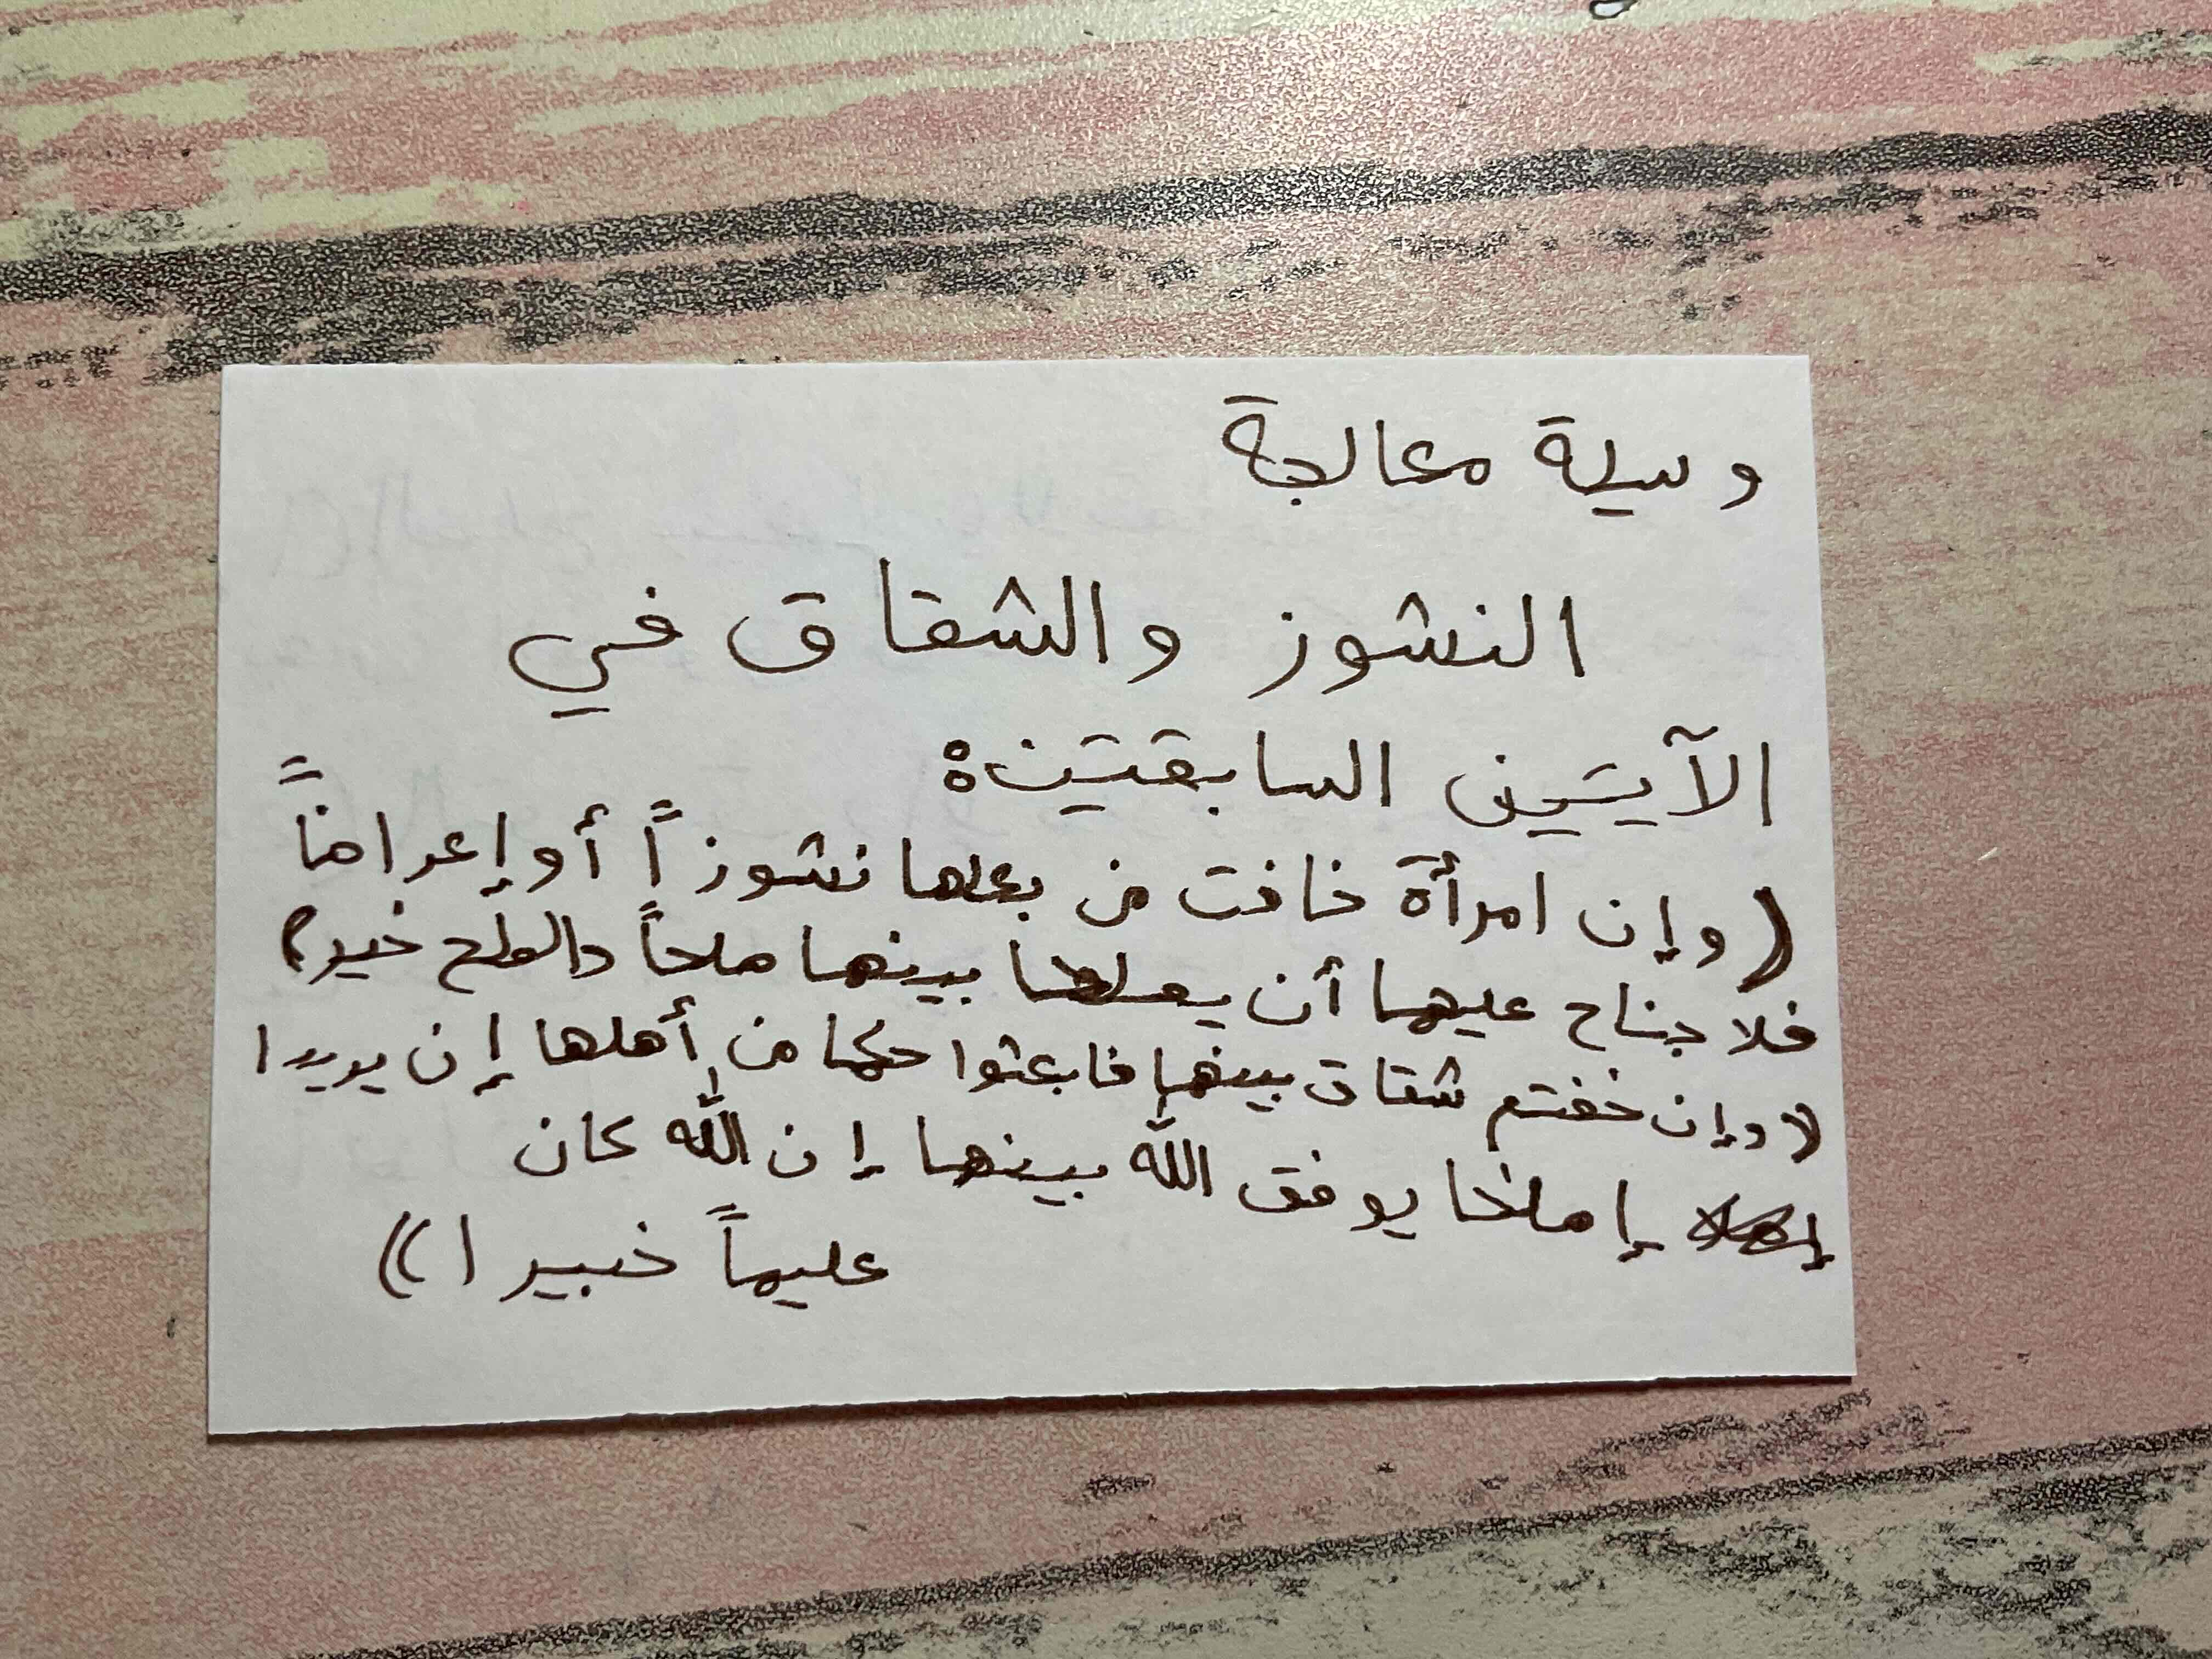 وسيلة معالجة
النشوز والشقاق في
الآيتين السابقتين:
(وإن امرأة خافت من بعلها نشوزاً أو إعراضاً
فلا جناح عليهما أن يصلحا بينهما صلحاً والصلح خير)
(وإن خفتم شقاق بينهما فابعثوا حكما من أهلها إن يريدا
إصلاحا يوفق الله بينهما إن الله كان
عليماً خبيرا))